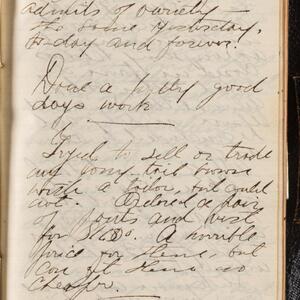 admits of variety
the same yesterday,
to-day and forever!
Done a pretty good
days work
6
Tried to sell or trade
my long tail brown
with a , but could
not. Ordered a pair
of pants and vest
for $6.80. A horrible
price for them, but
can get them no
cheaper.